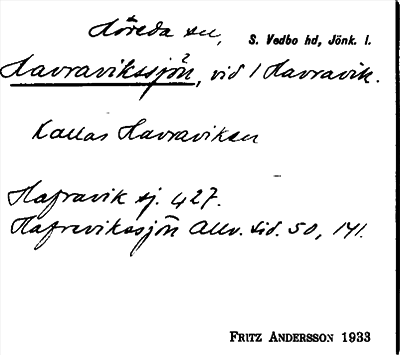 Höreda sn, S. Vedbo hd, Jönk. l.
Havravikssjön, vid 1 Havravik.
Kallas Havraviken
Hafravik sj. 427.
Hafrevikssjön Allv. sid. 50, 141.
FRITZ ANDERSSON 1933